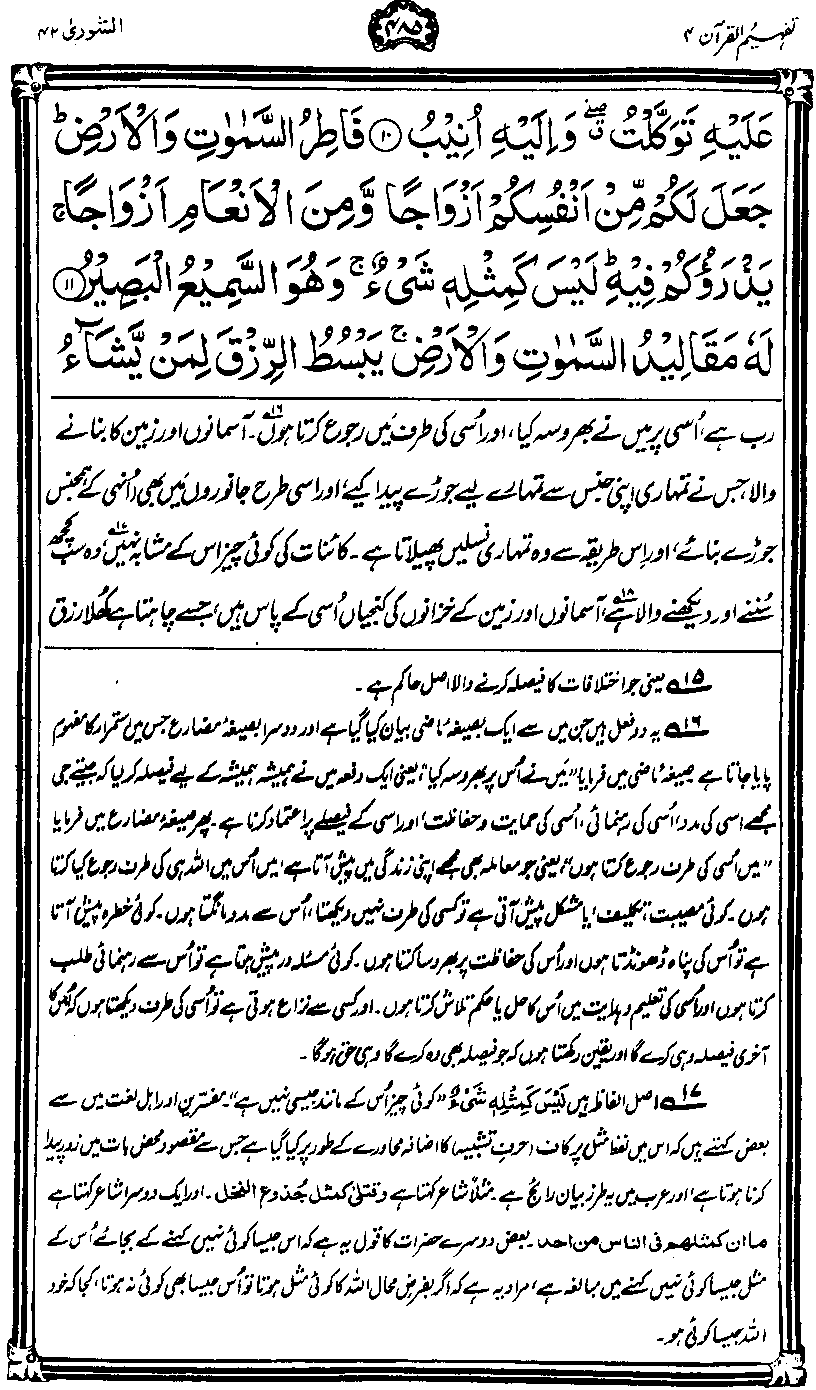 تفہیم القرآن ۴
۴۸۵
الشوریٰ ۴۲
عَلَيْهِ تَوَكَّلْتُ ۖ وَإِلَيْهِ أُنِيْبُ ۝۱۰ فَاطِرُ السَّمٰوٰتِ وَالْاَرْضِ ؕ
جَعَلَ لَكُمْ مِّنْ اَنْفُسِكُمْ اَزْوَاجًا وَّمِنَ الْاَنْعَامِ اَزْوَاجًا ۚ
يَذْرَؤُكُمْ فِيْهِ ؕ لَيْسَ كَمِثْلِهٖ شَىْءٌ ۚ وَهُوَ السَّمِيْعُ الْبَصِيْرُ ۝۱۱
لَهٗ مَقَالِيْدُ السَّمٰوٰتِ وَالْاَرْضِ ۚ يَبْسُطُ الرِّزْقَ لِمَنْ يَّشَآءُ
رب ہے، اُسی پر میں نے بھروسہ کیا، اور اُسی کی طرف مَیں رجوع کرتا ہوں۱۶۔ آسمانوں اور زمین کا بنانے
والا، جس نے تمہاری اپنی جنس سے تمہارے لیے جوڑے پیدا کیے، اور اسی طرح جانوروں میں بھی (اُنہی کے ہم جنس
جوڑے بنائے، اور اِس طریقہ سے وہ تمہاری نسلیں پھیلاتا ہے۔ کائنات کی کوئی چیز اس کے مشابہ نہیں۱۷، وہ سب کچھ
سُننے اور دیکھنے والا ہے۱۸، آسمانوں اور زمین کے خزانوں کی کنجیاں اُسی کے پاس ہیں، جسے چاہتا ہے کھُلا رزق
۱۵ یعنی جو اختلافات کا فیصلہ کرنے والا اصل حاکم ہے۔
۱۶ یہ دو فعل ہیں جن میں سے ایک بصیغۂ ماضی بیان کیا گیا ہے اور دوسرا بصیغۂ مضارع جس میں استمرار کا مفہوم
پایا جاتا ہے۔ صیغۂ ماضی میں فرمایا ”میں نے اُس پر بھروسہ کیا“، یعنی ایک دفعہ میں نے ہمیشہ ہمیشہ کے لیے فیصلہ کر لیا کہ جیتے جی
مجھے اسی کی مدد، اُسی کی رہنمائی، اُسی کی حمایت و حفاظت، اور اسی کے فیصلے پر اعتماد کرنا ہے۔ پھر صیغۂ مضارع میں فرمایا
”میں اُسی کی طرف رجوع کرتا ہوں“، یعنی جو معاملہ بھی مجھے اپنی زندگی میں پیش آتا ہے، میں اُس میں اللہ ہی کی طرف رجوع کیا کرتا
ہوں۔ کوئی مصیبت، تکلیف، یا مشکل پیش آتی ہے تو کسی کی طرف نہیں دیکھتا، اُس سے مدد مانگتا ہوں۔ کوئی خطرہ پیش آتا
ہے تو اُس کی پناہ ڈھونڈتا ہوں اور اُس کی حفاظت پر بھروسا کرتا ہوں۔ کوئی مسئلہ درپیش ہوتا ہے تو اُس سے رہنمائی طلب
کرتا ہوں اور اُسی کی تعلیم و ہدایت میں اُس کا حل یا حکم تلاش کرتا ہوں۔ اور کسی سے نزاع ہوتی ہے تو اُسی کی طرف دیکھتا ہوں کہ اُس کا
آخری فیصلہ وہی کرے گا اور یقین رکھتا ہوں کہ جو فیصلہ بھی وہ کرے گا وہی حق ہوگا۔
۱۷ اصل الفاظ ہیں لَيْسَ كَمِثْلِهٖ شَىْءٌ ”کوئی چیز اُس کے مانند جیسی نہیں ہے“۔ مفسرین اور اہل لغت میں سے
بعض کہتے ہیں کہ اس میں لفظ مثل پر کاف (حرف تشبیہ) کا اضافہ محاورے کے طور پر کیا گیا ہے جس سے مقصود محض بات میں زور پیدا
کرنا ہوتا ہے، اور عرب میں یہ طرز بیان رائج ہے۔ مثلاً شاعر کہتا ہے وقتلیٰ کمثل جذوع النخل۔ اور ایک دوسرا شاعر کہتا ہے
ما ان کمثلھم فی الناس من احد۔ بعض دوسرے حضرات کا قول یہ ہے کہ اس جیسا کوئی نہیں کہنے کے بجائے اُس کے
مثل جیسا کوئی نہیں کہنے میں مبالغہ ہے، مراد یہ ہے کہ اگر بفرض محال اللہ کا کوئی مثل ہوتا تو اُس جیسا بھی کوئی نہ ہوتا، کجا کہ خود
اللہ جیسا کوئی ہو۔